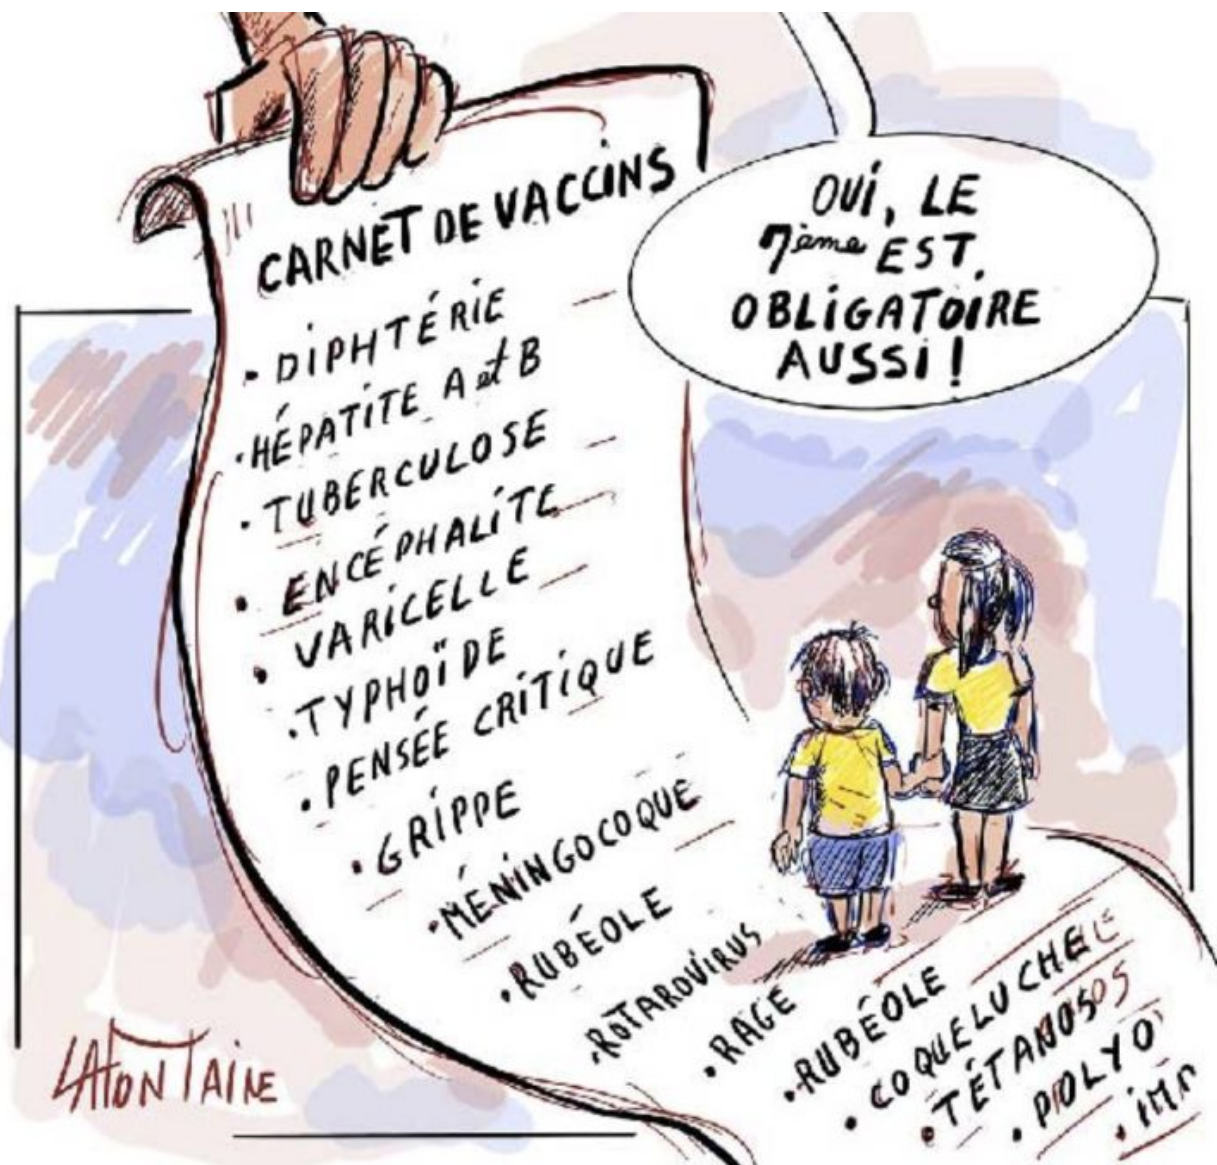 CARNET DE VACCINS
• DIPHTÉRIE
• HÉPATITE A et B
• TUBERCULOSE
• ENCÉPHALITE
• VARICELLE
• TYPHOÏDE
• PENSÉE CRITIQUE
• GRIPPE
• MÉNINGOCOQUE
• RUBÉOLE
• ROTAROVIRUS
• RAGE
• RUBÉOLE
• COQUELUCHE
• TÉTANOS
• POLYO
OUI, LE
7ème EST
OBLIGATOIRE
AUSSI !
LAFONTAINE